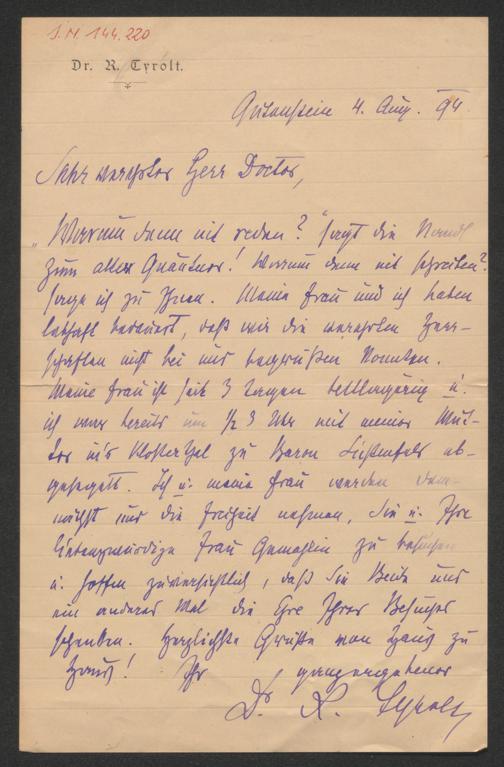 I.N. 144.220
Dr. R. Tyrolt.
Gutenstein 4. Aug. 94.
Sehr verehrter Herr Doctor,
„Warum denn nit reden?" sagt die Nandl
zum alten Quäntner! Warum denn nit schreiben?
sage ich zu Ihnen. Meine Frau und ich haben
lebhaft bedauert, daß wir die verehrten Herr-
schaften nicht bei uns begrüßen konnten.
Meine Frau ist seit 3 Tagen bettlägerig u.
ich war bereits um ½ 3 Uhr mit meiner Mut-
ter in's Klosterthal zu Baron abge-
gesegelt. Ich u. meine Frau werden dem-
nächst uns die Freiheit nehmen, Sie u. Ihre
liebenswürdige Frau Gemahlin zu besuchen
u. hoffen zuversichtlich, daß Sie Beide uns
ein anderes Mal die Ehre Ihres Besuches
schenken. Herzlichste Grüße von Haus zu
Haus! Ihr ganz ergebener
Dr. R. Tyrolt